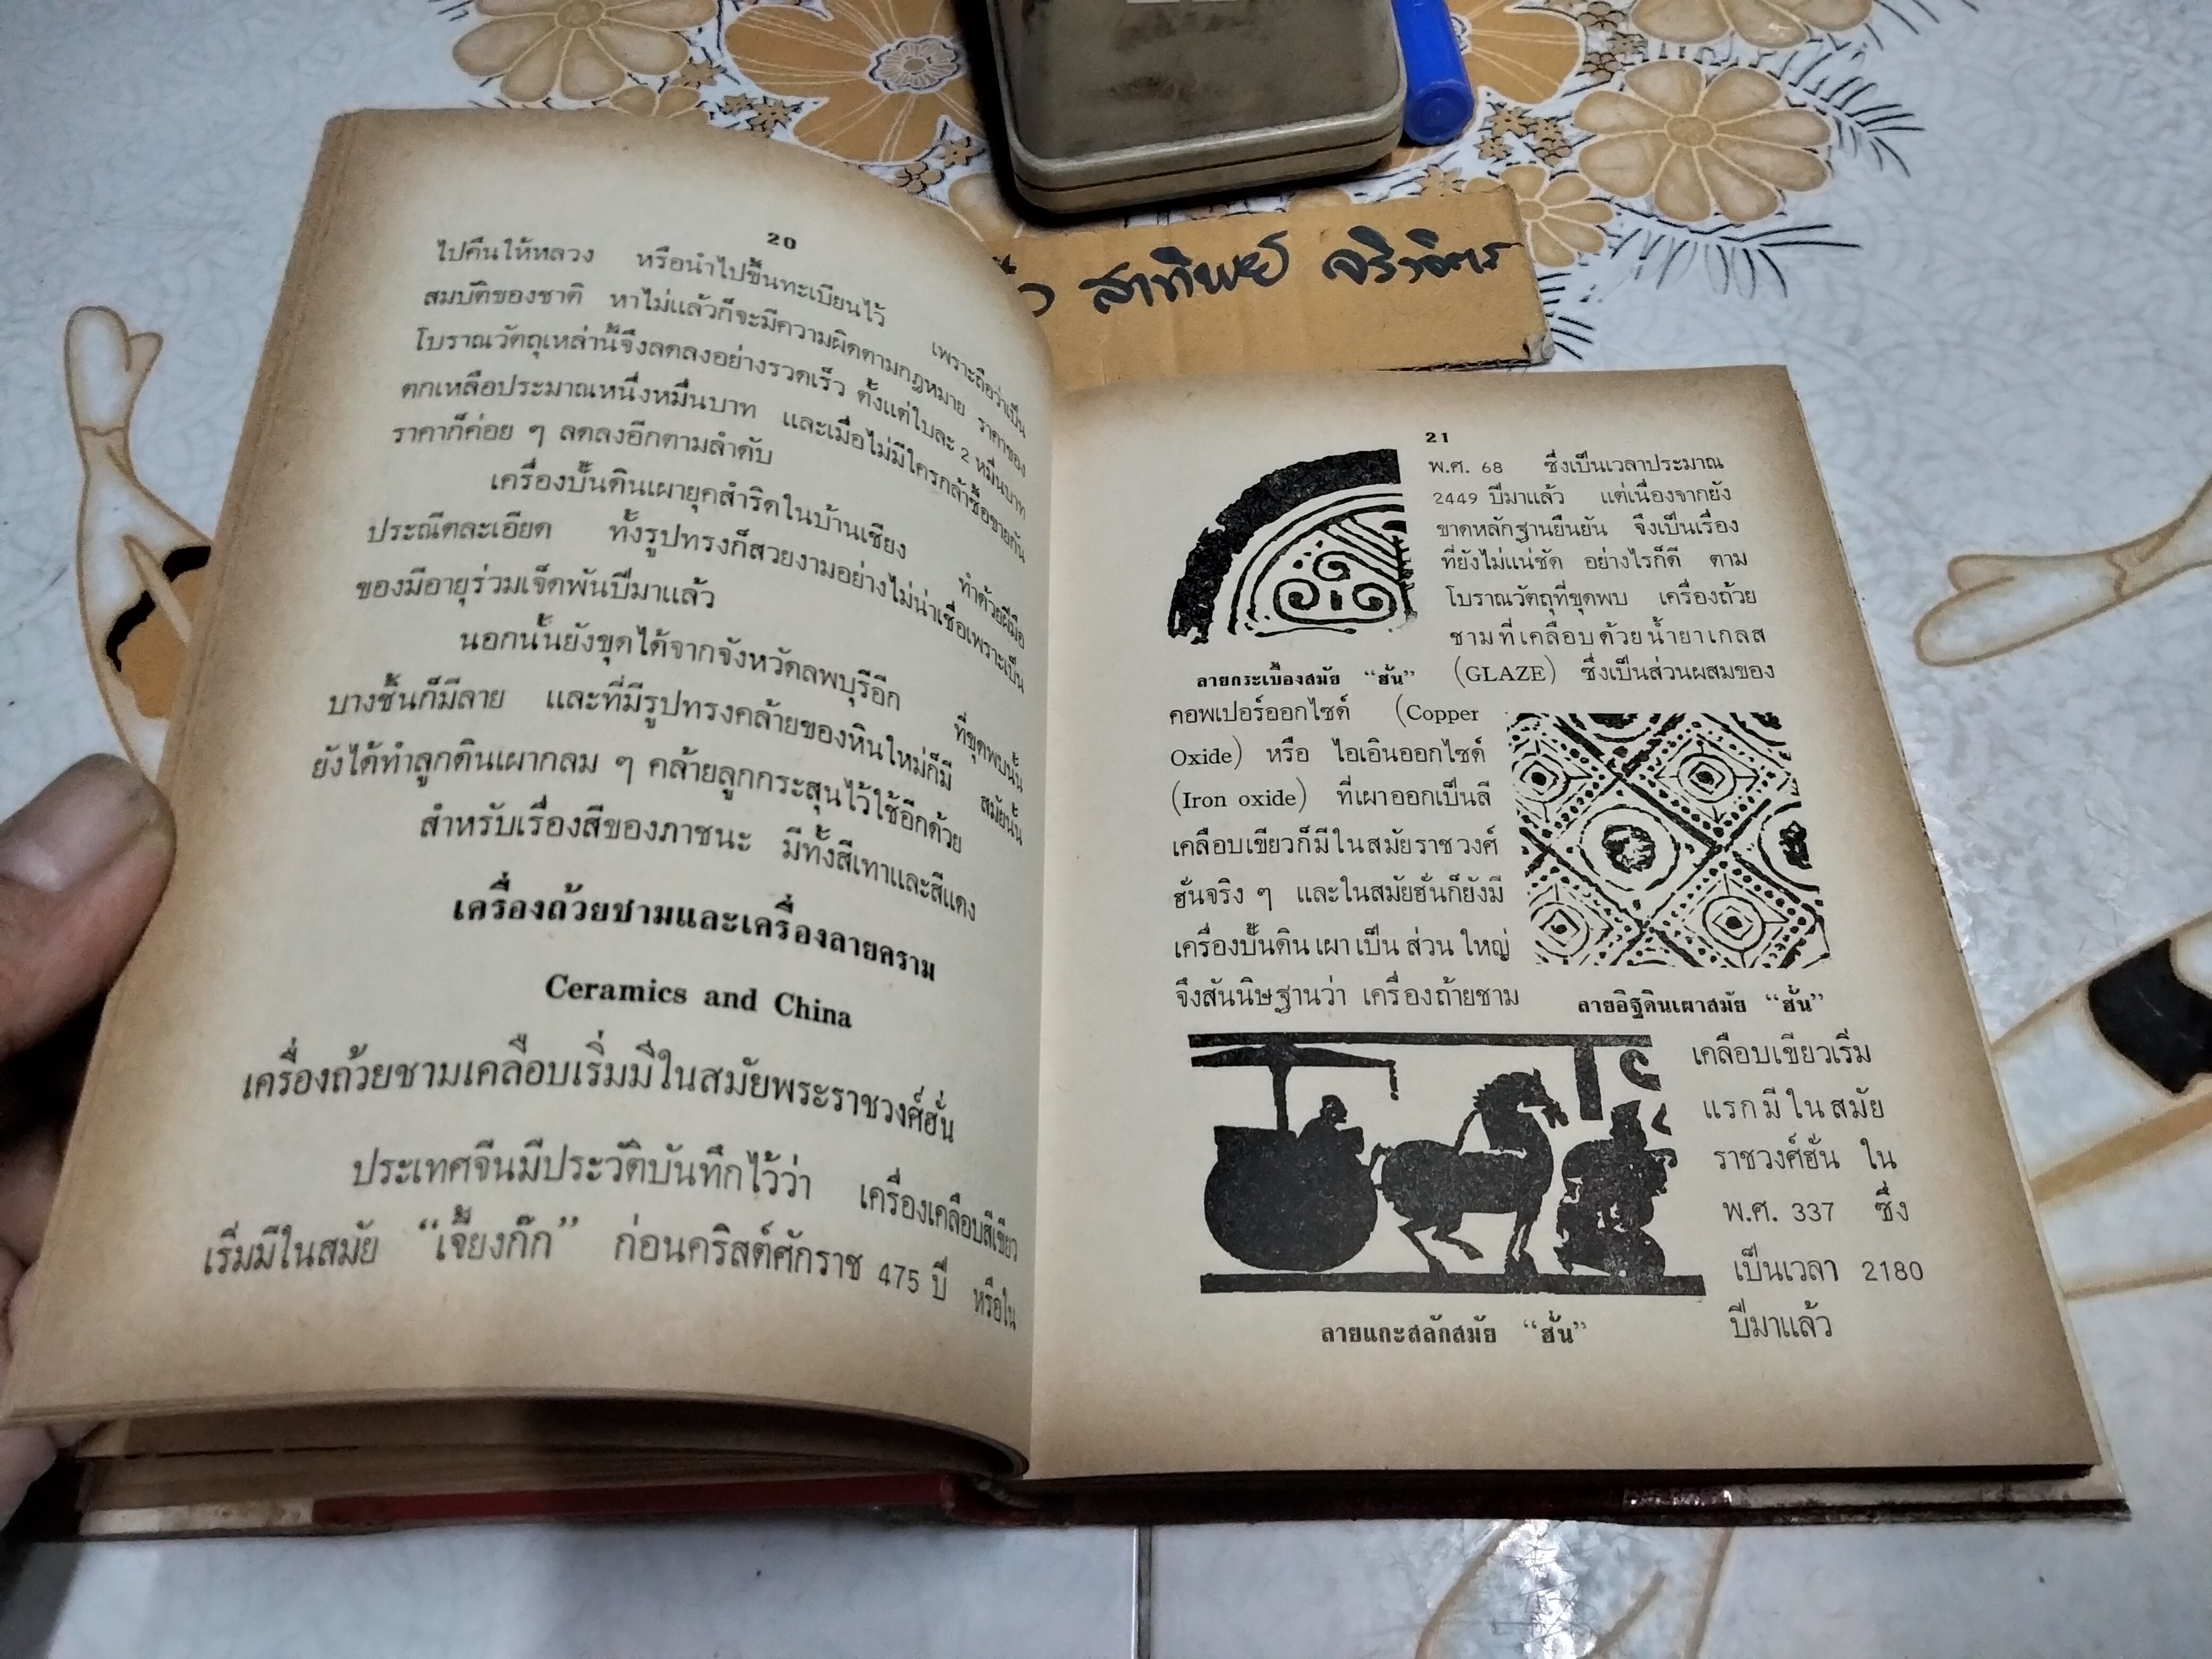 20
ไปคืนให้หลวง หรือนำไปขึ้นทะเบียนไว้ เพราะถือว่าเป็น
สมบัติของชาติ หาไม่แล้วก็จะมีความผิดตามกฎหมาย ราคาของ
โบราณวัตถุเหล่านี้จึงลดลงอย่างรวดเร็ว ตั้งแต่ใบละ 2 หมื่นบาท
ตกเหลือประมาณหนึ่งหมื่นบาท และเมื่อไม่มีใครกล้าซื้อขายกัน
ราคาก็ค่อย ๆ ลดลงอีกตามลำดับ
เครื่องปั้นดินเผายุคสำริดในบ้านเชียง ทำด้วยฝีมือ
ประณีตละเอียด ทั้งรูปทรงก็สวยงามอย่างไม่น่าเชื่อเพราะเป็น
ของมีอายุร่วมเจ็ดพันปีมาแล้ว
นอกนั้นยังขุดได้จากจังหวัดลพบุรีอีก ที่ขุดพบนั้น
บางชิ้นก็มีลาย และที่มีรูปทรงคล้ายของหินใหม่ก็มี สมัยนั้น
ยังได้ทำลูกดินเผากลม ๆ คล้ายลูกกระสุนไว้ใช้อีกด้วย
สำหรับเรื่องสีของภาชนะ มีทั้งสีเทาและสีแดง
เครื่องถ้วยชามและเครื่องลายคราม
Ceramics and China
เครื่องถ้วยชามเคลือบเริ่มมีในสมัยพระราชวงศ์ฮั่น
ประเทศจีนมีประวัติบันทึกไว้ว่า เครื่องเคลือบสีเขียว
เริ่มมีในสมัย “เจี้ยงก๊ก” ก่อนคริสต์ศักราช 475 ปี หรือใน
สาทิพย์
21
พ.ศ. 68 ซึ่งเป็นเวลาประมาณ
2449 ปีมาแล้ว แต่เนื่องจากยัง
ขาดหลักฐานยืนยัน จึงเป็นเรื่อง
ที่ยังไม่แน่ชัด อย่างไรก็ดี ตาม
โบราณวัตถุที่ขุดพบ เครื่องถ้วย
ชามที่เคลือบด้วยน้ำยาเกลส
ลายกระเบื้องสมัย “ฮั่น” (GLAZE) ซึ่งเป็นส่วนผสมของ
คอพเปอร์ออกไซด์ (Copper
Oxide) หรือ ไอเอินออกไซด์
(Iron oxide) ที่เผาออกเป็นสี
เคลือบเขียวก็มีในสมัยราชวงศ์
ฮั่นจริง ๆ และในสมัยฮั่นก็ยังมี
เครื่องปั้นดินเผาเป็นส่วนใหญ่
จึงสันนิษฐานว่า เครื่องถ้ายชาม
ลายอิฐดินเผาสมัย “ฮั่น”
เคลือบเขียวเริ่ม
แรกมีในสมัย
ราชวงศ์ฮั่น ใน
พ.ศ. 337 ซึ่ง
เป็นเวลา 2180
ปีมาแล้ว
ลายแกะสลักสมัย “ฮั่น”